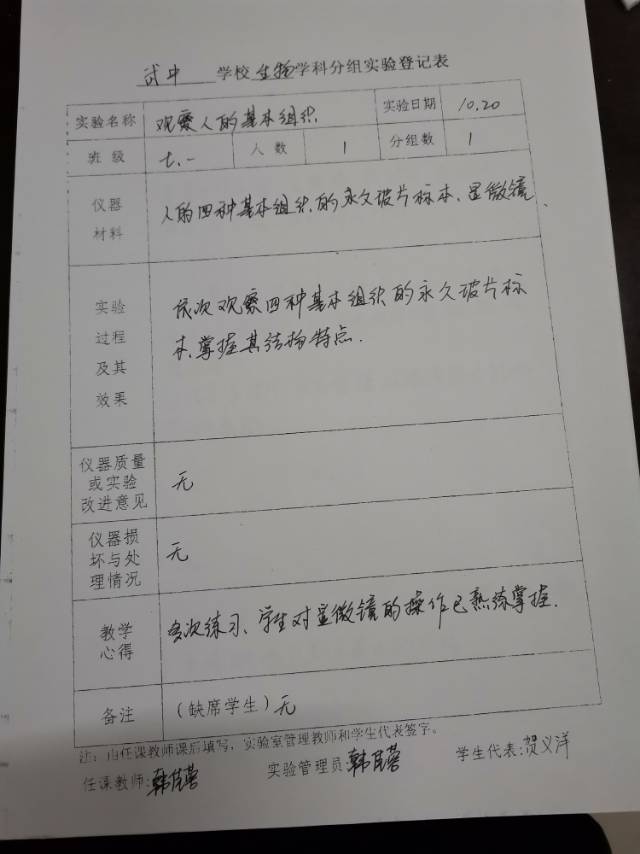 试中 学校生物学科分组实验登记表
实验名称 观察人的基本组织 实验日期 10.20
班 级 七.一 人 数 1 分组数 1
仪器
材料
人的四种基本组织的永久玻片标本、显微镜.
实验
过程
及其
效果
依次观察四种基本组织的永久玻片标
本,掌握其结构特点.
仪器质量
或实验
改进意见
无
仪器损
坏与处
理情况
无
教学
心得
多次练习、学生对显微镜的操作已熟练掌握.
备注 (缺席学生)无
注:由任课教师课后填写,实验室管理教师和学生代表签字。
任课教师: 实验管理员: 学生代表:贺义洋